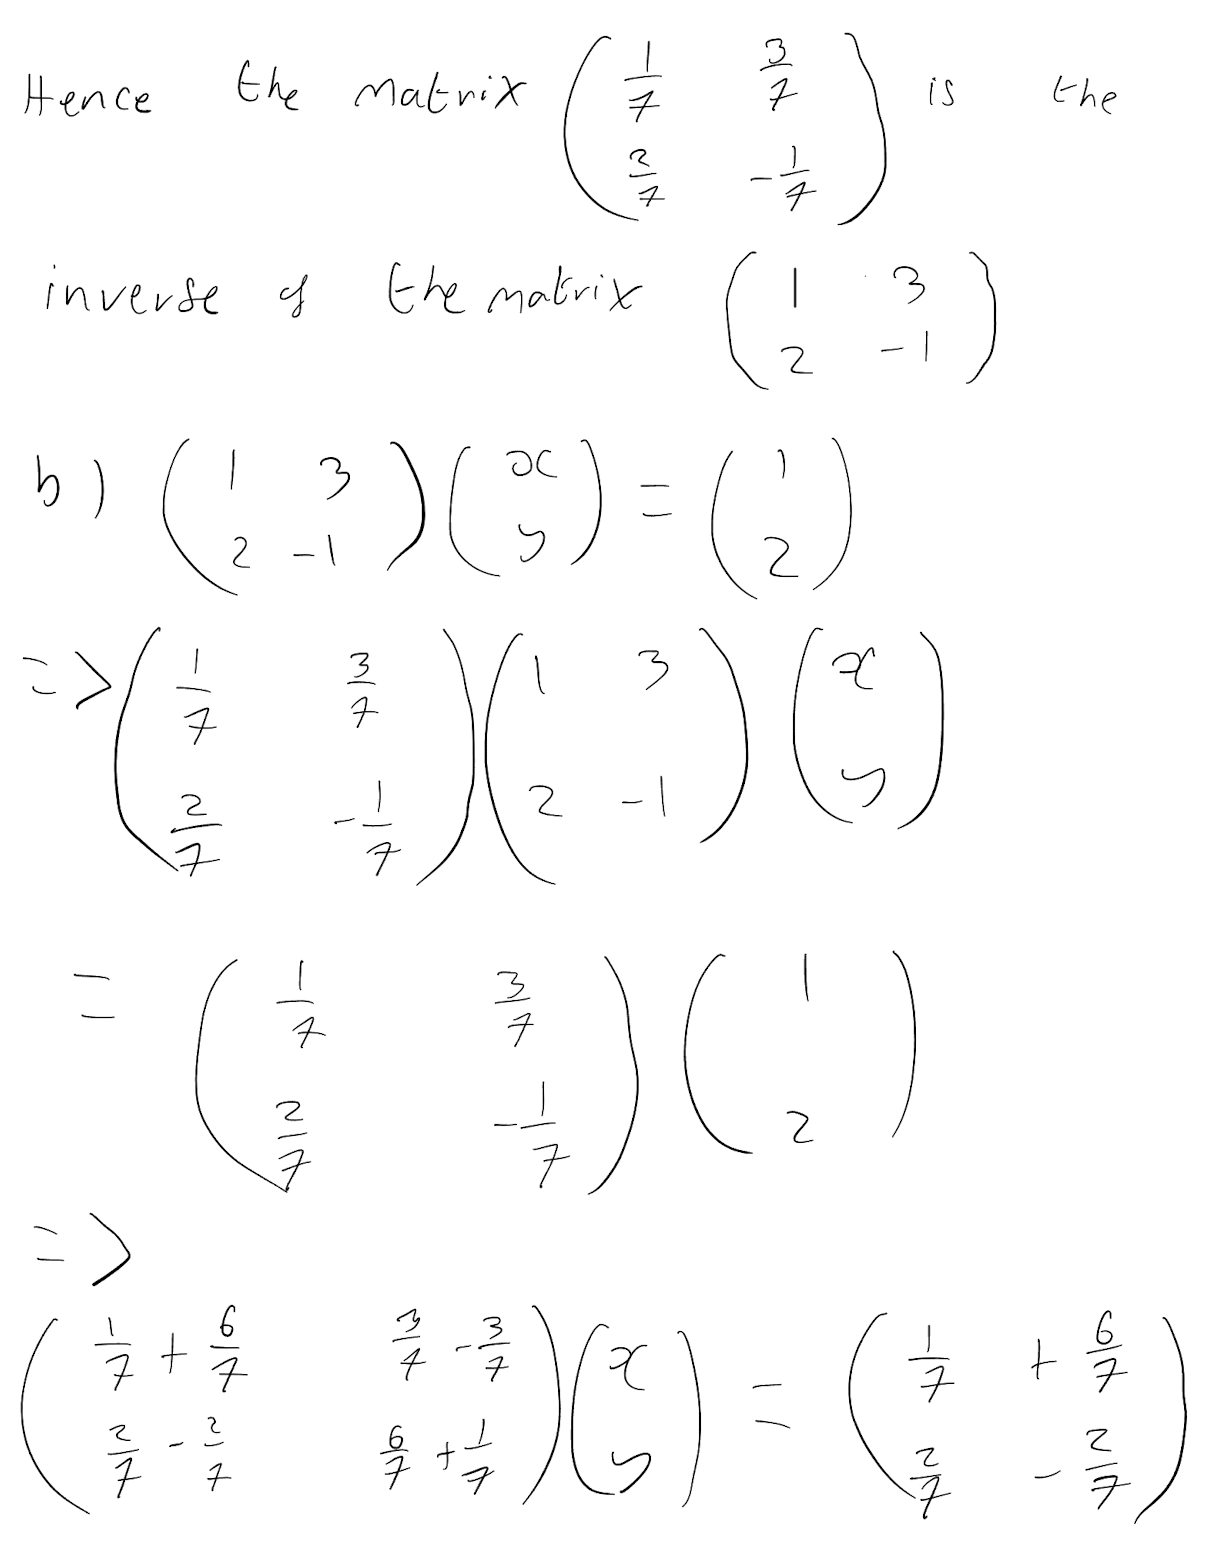 Hence the matrix \begin{pmatrix} \frac{1}{7} & \frac{3}{7} \\ \frac{2}{7} & -\frac{1}{7} \end{pmatrix} is the
inverse of the matrix \begin{pmatrix} 1 & 3 \\ 2 & -1 \end{pmatrix}
b) \begin{pmatrix} 1 & 3 \\ 2 & -1 \end{pmatrix} \begin{pmatrix} x \\ y \end{pmatrix} = \begin{pmatrix} 1 \\ 2 \end{pmatrix}
=> \begin{pmatrix} \frac{1}{7} & \frac{3}{7} \\ \frac{2}{7} & -\frac{1}{7} \end{pmatrix} \begin{pmatrix} 1 & 3 \\ 2 & -1 \end{pmatrix} \begin{pmatrix} x \\ y \end{pmatrix}
= \begin{pmatrix} \frac{1}{7} & \frac{3}{7} \\ \frac{2}{7} & -\frac{1}{7} \end{pmatrix} \begin{pmatrix} 1 \\ 2 \end{pmatrix}
=>
\begin{pmatrix} \frac{1}{7} + \frac{6}{7} & \frac{3}{7} - \frac{3}{7} \\ \frac{2}{7} - \frac{2}{7} & \frac{6}{7} + \frac{1}{7} \end{pmatrix} \begin{pmatrix} x \\ y \end{pmatrix} = \begin{pmatrix} \frac{1}{7} + \frac{6}{7} \\ \frac{2}{7} - \frac{2}{7} \end{pmatrix}